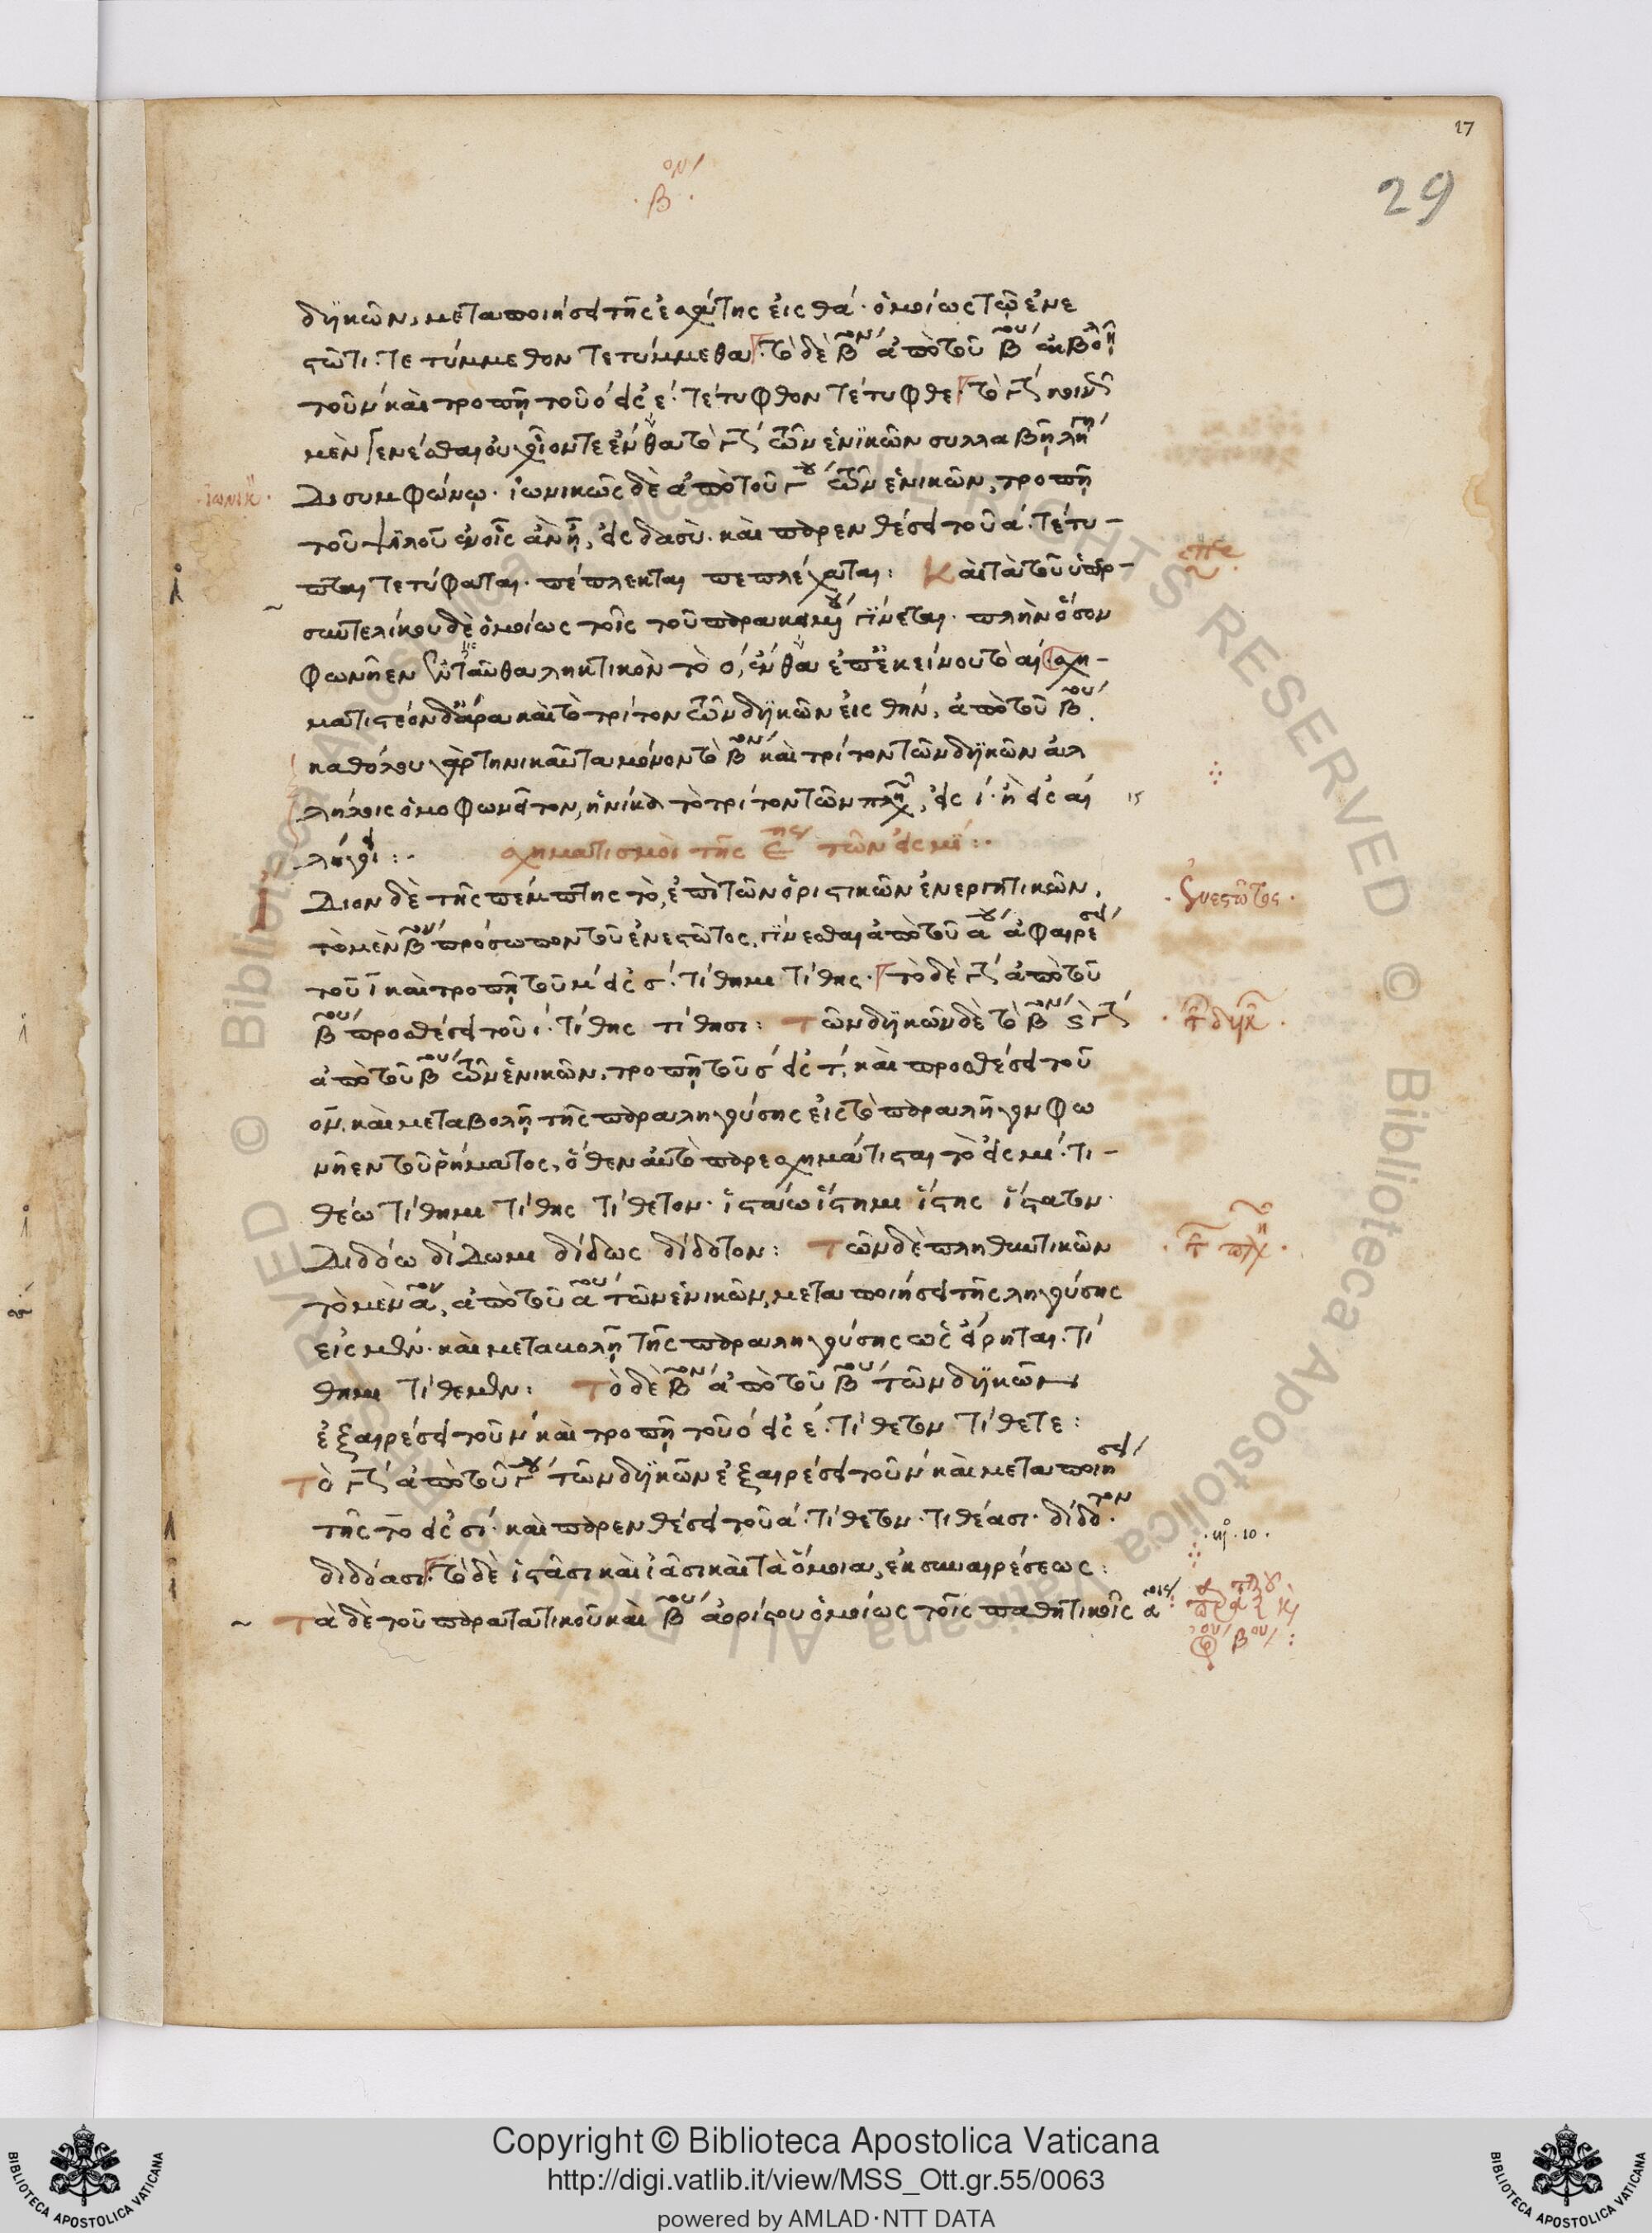 17
29
.β.ον/
δϊκῶν, μεταποιήσει τῆς ἐσχάτης εἰς θά· ὁμοίως τῷ ἐνε
στῶτι· τετύμμεθον τετύμμεθα· τὸ δὲ β̅ον ἀπὸ τοῦ β̅ου ἐκβολῆ
τοῦ ν́ καὶ τροπῆ τοῦ ό εἰς έ· τέτυφθον τέτυφθε· τὸ γ̅
μὲν γενέσθαι οὐχ οἷόν τε ἔνθα τὸ γ̅ τῶν ἑνϊκῶν συλλαβῆ λήγη
δισυμφώνω· ἰωνικῶς δὲ ἀπὸ τοῦ γ̅ου τῶν ἑνικῶν, τροπῆ
τοῦ ψιλοῦ ἐν οἷς ἂν ῇ, εἰς δασύ· καὶ παρενθέσει τοῦ ά· τέτυ-
πται τετύφαται· πέπλεκται πεπλέχαται: Καὶ τὰ τοῦ ὑπερ-
συντελίκου δὲ ὁμοίως τοῖς τοῦ παρακειμένου γίνεται· πλὴν ὅσον
φωνῆεν ἐνταῦθα ληκτικὸν τὸ ό, ἔνθα ἐπ' ἐκείνου τὸ αι σχη-
ματιστέον δ' ἄρα καὶ τὸ τρίτον τῶν δϊκῶν εἰς θην, ἀπὸ τοῦ β̅ου
καθόλου γὰρ τηνικαῦτα μόνον τὸ β̅ον καὶ τρίτον τῶν δϊκῶν ἀλ
λήλοις ὁμοφωνεῖτον, ἡνίκα τὸ τρίτον τῶν πλη, εἰς ί· ἢ εἰς αι
λήγει:·
σχηματισμοὶ τῆς ε̅ης τῶν εἰς μϊ:·
Δέον δὲ τῆς πέμπτης τὸ, ἐπὶ τῶν ὁριστικῶν ἐνεργητικῶν,
τὸ μὲν β̅ον πρόσωπον τοῦ ἐνεστῶτος, γίνεσθαι ἀπὸ τοῦ α̅ου ἀφαιρέσει
τοῦ ῑ καὶ τροπῆ τοῦ μ́ εἰς σ́· τίθημι τίθης· τὸ δὲ γ̅ ἀπὸ τοῦ
β̅ου προσθέσει τοῦ ί· τίθης τίθησι: Τῶν δϊκῶν δὲ τὸ β̅ον ϗ γ̅
ἀπὸ τοῦ β̅ου τῶν ἑνικῶν, τροπῆ τοῦ σ́ εἰς τ́, καὶ προσθέσει τοῦ
ον, καὶ μεταβολῆ τῆς παραληγούσης εἰς τὸ παραλῆγον φω
νῆεν τοῦ ῥήματος, ὅθεν αὐτὸ παρεσχημάτισται τὸ εἰς μι· τι-
θέω τίθημι τίθης τίθετον· ἱστάω ἵστημι ἵστης ἵστατον·
Διδόω δίδωμι δίδως δίδοτον: Τῶν δὲ πληθυντικῶν
τὸ μὲν α̅ον, ἀπὸ τοῦ α̅ου τῶν ἑνικῶν, μεταποιήσει τῆς ληγούσης
εἰς μεν· καὶ μεταβολῆ τῆς παραληγούσης ὡς εἴρηται· τί
θημι τίθεμεν: Τὸ δὲ β̅ον ἀπὸ τοῦ β̅ου τῶν δϊκῶν
ἐξαιρέσει τοῦ ν́ καὶ τροπῆ τοῦ ό εἰς έ· τίθετον τίθετε:
Τὸ γ̅ ἀπὸ τοῦ γ̅ου τῶν δϊκῶν ἐξαιρέσει τοῦ ν́ καὶ μεταποιήσει
τῆς το εἰς σι· καὶ παρενθέσει τοῦ ά· τίθετον· τιθέασι· δίδοτον·
διδόασι· τὸ δὲ ἱστᾶσι καὶ ἱᾶσι καὶ τὰ ὅμοια, ἐκ συναιρέσεως:
Τὰ δὲ τοῦ παρατατικοῦ καὶ β̅ου ἀορίστου ὁμοίως τοῖς παθητικοῖς α̅οις
·ἰωνικ·
·ἐνεστῶτος·
·τ δϊκ·
·τ πλη·
Copyright © Biblioteca Apostolica Vaticana
http://digi.vatlib.it/view/MSS_Ott.gr.55/0063
powered by AMLAD·NTT DATA
BIBLIOTECA APOSTOLICA VATICANA
BIBLIOTECA APOSTOLICA VATICANA